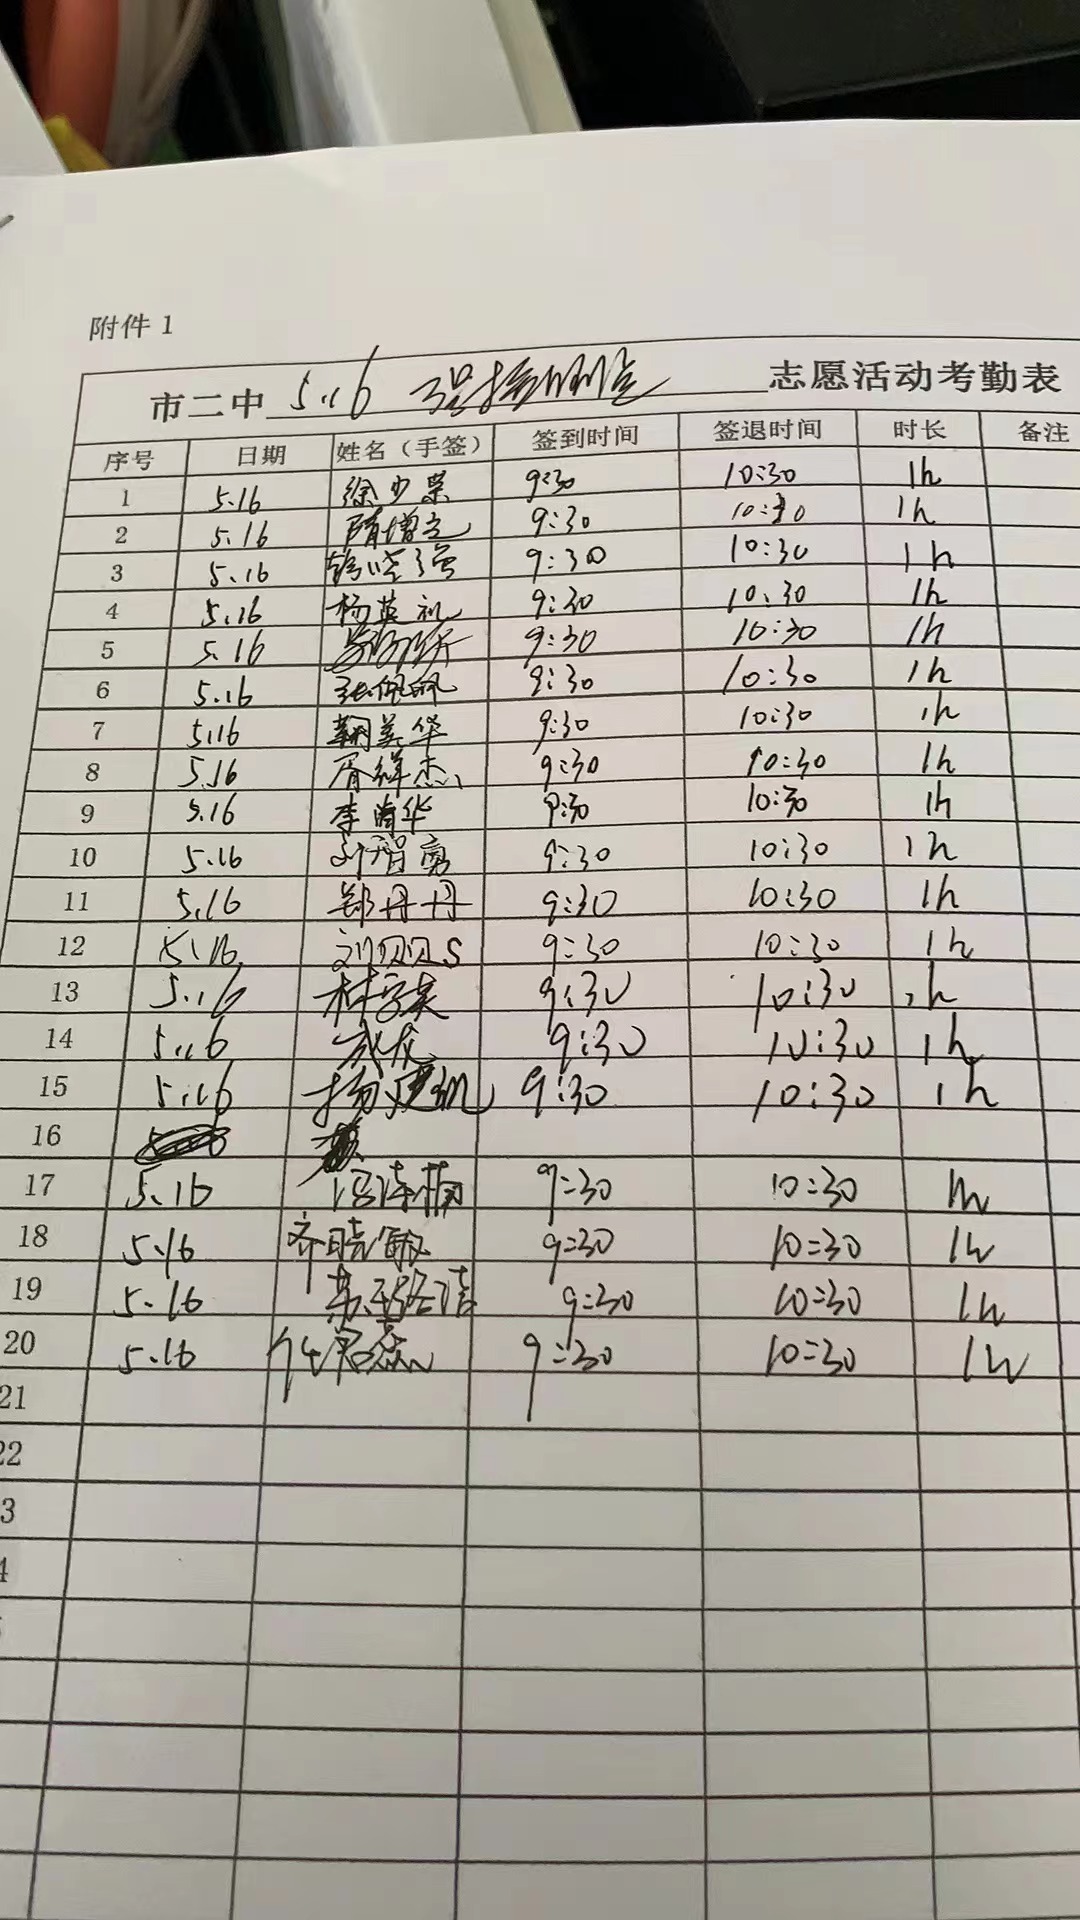 附件 1
市二中 5.16 志愿活动考勤表
序号 日期 姓名（手签） 签到时间 签退时间 时长 备注
1 5.16 徐少荣 9:30 10:30 1h
2 5.16 隋增志 9:30 10:30 1h
3 5.16 9:30 10:30 1h
4 5.16 杨英礼 9:30 10:30 1h
5 5.16 9:30 10:30 1h
6 5.16 张佩佩 9:30 10:30 1h
7 5.16 美华 9:30 10:30 1h
8 5.16 胥祥杰 9:30 10:30 1h
9 5.16 李海华 9:30 10:30 1h
10 5.16 刘智勇 9:30 10:30 1h
11 5.16 郑丹丹 9:30 10:30 1h
12 5.16 刘贝贝S 9:30 10:30 1h
13 5.16 9:30 10:30 1h
14 5.16 9:30 10:30 1h
15 5.16 杨建 9:30 10:30 1h
16
17 5.16 冯诗楠 9:30 10:30 1h
18 5.16 齐晓敏 9:30 10:30 1h
19 5.16 苏 9:30 10:30 1h
20 5.16 9:30 10:30 1h
21
22
3
4